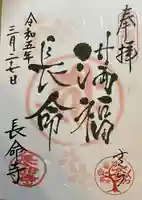 奉拝
満福
長命
令和五年
三月二十七日
長命寺